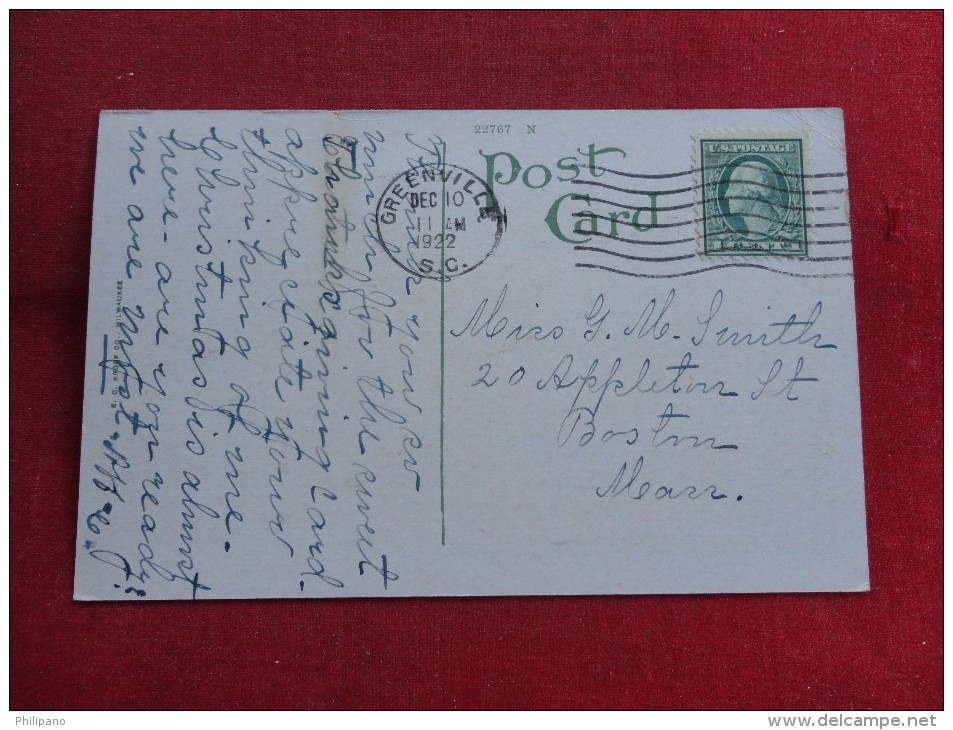 22767 N
Post
Card
U.S. POSTAGE
GREENVILLE
DEC 10
11 AM
1922
S.C.
Miss G. M. Smith
20 Appleton St
Boston
Mass.
Thank you so
much for the sweet
Thanksgiving Card.
appreciate your
thinking of me-
Christmas is almost
here- are you ready?
we are not
E. C. KROPP CO., MILWAUKEE
Philipano
www.delcampe.net